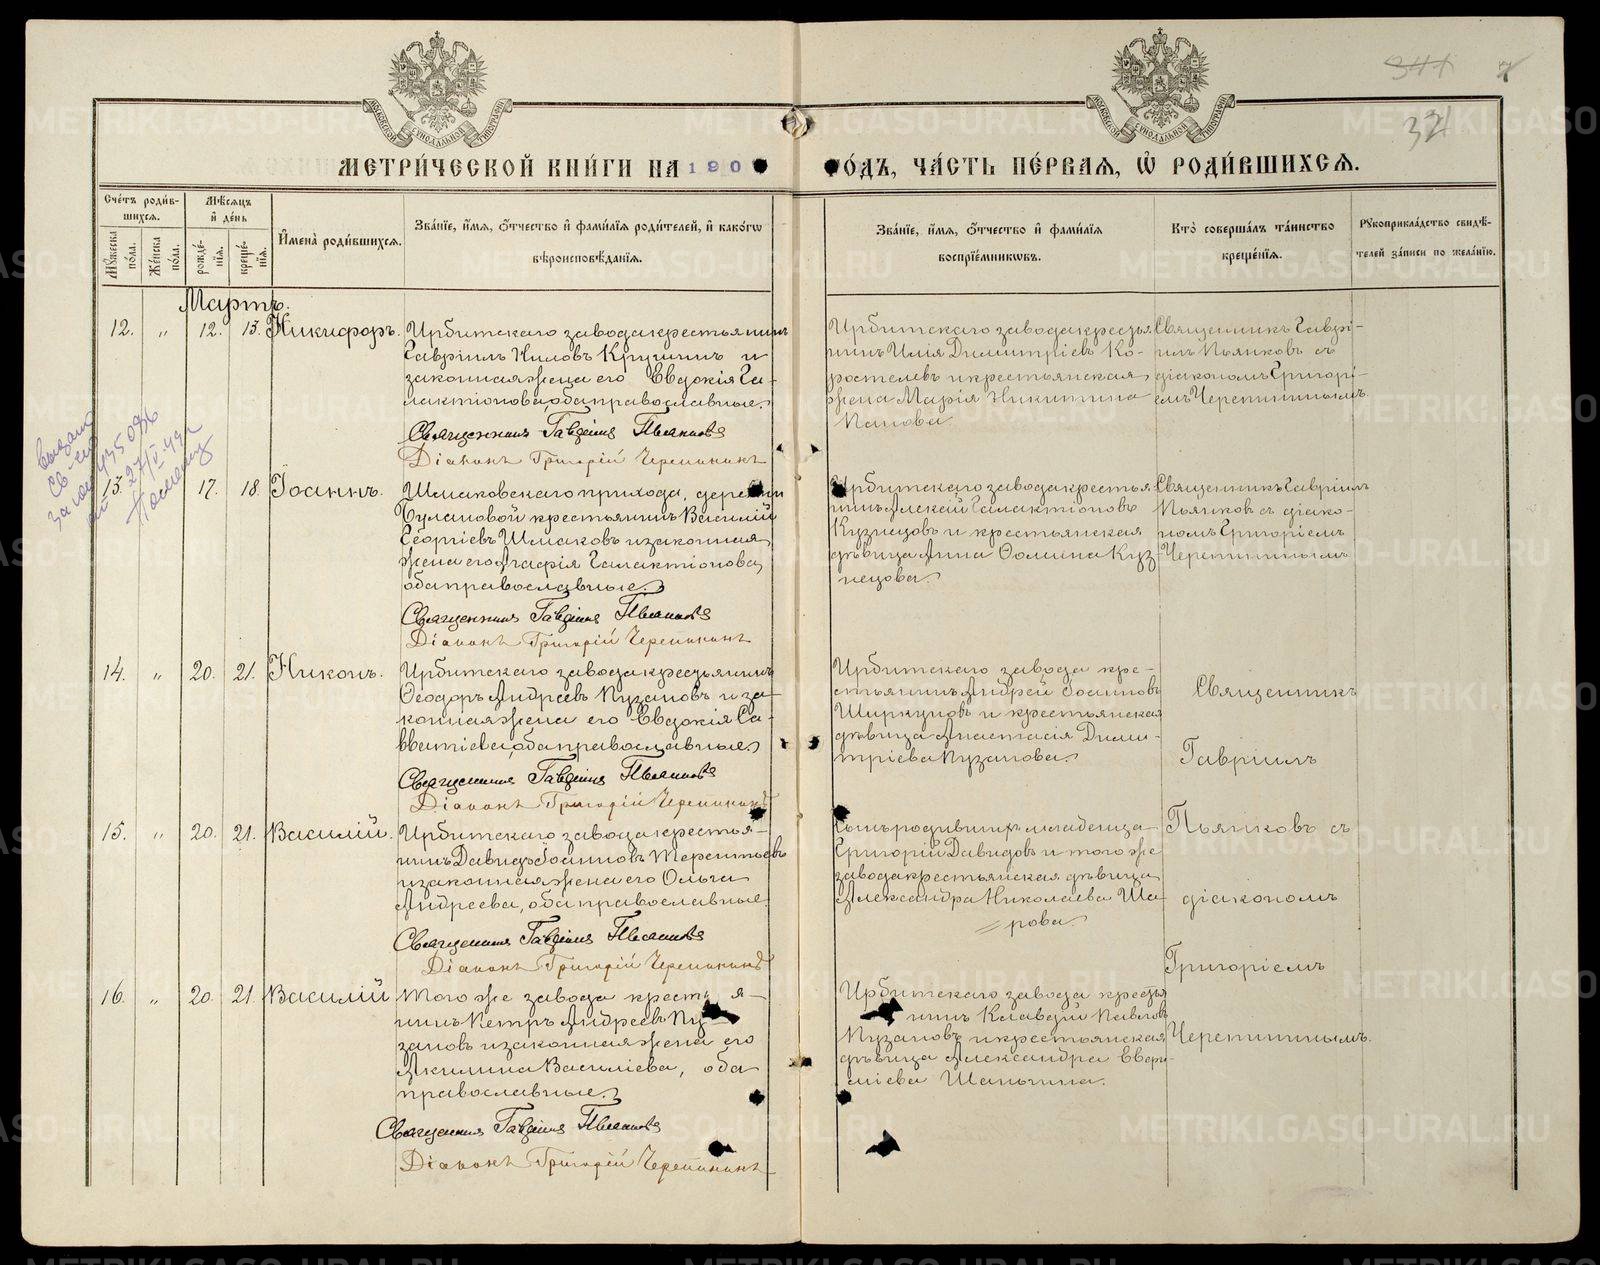 МОСКОВСКОЙ СУНОДАЛЬНОЙ ТИПОГРАФІИ
МОСКОВСКОЙ СУНОДАЛЬНОЙ ТИПОГРАФІИ
341
32
МЕТРИ́ЧЕСКОЙ КНИ́ГИ НА 190
ГО́ДЪ, ЧА́СТЬ ПЕ́РВАЯ, Ѽ РОДИ́ВШИХСЯ.
Сче́тъ роди́в-
шихся.
Мꙋ́жеска по́ла.
Же́нска по́ла.
Мѣ́сяцъ
и҆ де́нь
рожде́нїя.
креще́нїя.
И҆мена̀ роди́вшихся.
Зва́нїе, и҆́мя, ѻ҆́тчество и҆ фами́лїя роди́телей, и҆ како́гѡ
вѣроисповѣ́данїя.
Зва́нїе, и҆́мя, ѻ҆́тчество и҆ фами́лїя
воспрїе́мникѡвъ.
Кто̀ соверша́лъ та́инство
креще́нїя.
Рꙋкоприкла́дство свидѣ́-
телей за́писи по жела́нїю.
Мартъ.
12. " 12. 13. Никифоръ.
Ирбитскаго завода крестьянинъ
Гавріилъ Ниловъ Кругинъ и
законная жена его Евдокія Га-
лактіонова, оба православные.
Священникъ Гавріилъ Пьянковъ
Діаконъ Григорій Черепанинъ
Ирбитскаго завода крестья
нинъ Илія Димитріевъ Ко-
ростелевъ и крестьянская
жена Марія Никитина
Панова.
Священникъ Гаврі-
илъ Пьянковъ съ
діакономъ Григорі-
емъ Черепанинымъ.
13. 17. 18. Іоаннъ.
Шмаковскаго прихода, деревни
Булановой крестьянинъ Василій
Георгіевъ Шмаковъ и законная
жена его Агафія Галактіонова,
оба православные.
Священникъ Гавріилъ Пьянковъ
Діаконъ Григорій Черепанинъ
Ирбитскаго завода крестья
нинъ Алексѣй Галактіоновъ
Кузнецовъ и крестьянская
дѣвица Анна Ѳомина Куз-
нецова.
Священникъ Гавріилъ
Пьянковъ съ діако-
номъ Григоріемъ
Черепанинымъ
14. " 20. 21. Никонъ.
Ирбитскаго завода крестьянинъ
Ѳеодоръ Андреевъ Пузановъ и за-
конная жена его Евдокія Са-
вватіева, оба православные.
Священникъ Гавріилъ Пьянковъ
Діаконъ Григорій Черепанинъ
Ирбитскаго завода кре-
стьянинъ Андрей Іоанновъ
Ширкуновъ и крестьянская
дѣвица Анастасія Дими-
тріева Пузанова.
Священникъ
Гавріилъ
Пьянковъ съ
діакономъ
Григоріемъ
Черепанинымъ.
15. " 20. 21. Василій.
Ирбитскаго завода крестья-
нинъ Давидъ Іоанновъ Терентьевъ
и законная жена его Ольга
Андреева, оба православные.
Священникъ Гавріилъ Пьянковъ
Діаконъ Григорій Черепанинъ
Сынъ родившихъ младенца
Григорій Давидовъ и того же
завода крестьянская дѣвица
Александра Николаева Ша-
рова.
16. " 20. 21. Василій
Того же завода крестья-
нинъ Петръ Андреевъ Пу-
зановъ и законная жена его
Акилина Василіева, оба
православные.
Священникъ Гавріилъ Пьянковъ
Діаконъ Григорій Черепанинъ
Ирбитскаго завода крестья
нинъ Клавдій Павловъ
Пузановъ и крестьянская
дѣвица Александра Евфи-
міева Шаньгина.
METRIKI.GASO-URAL.RU